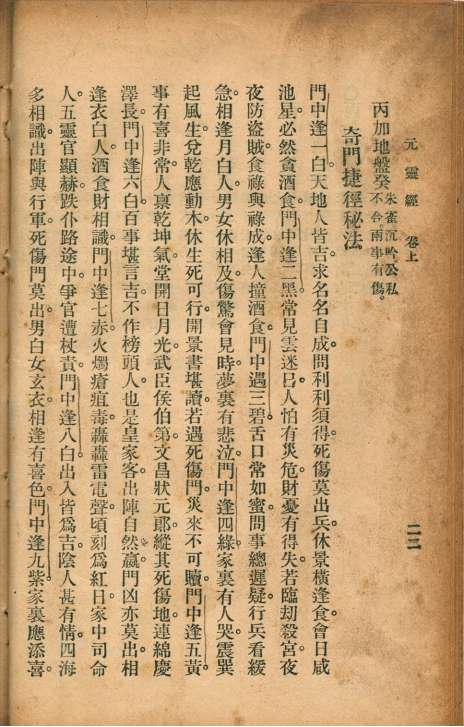 元靈經 卷上
二二
丙加地盤癸 朱雀沉吟公私
不合兩事有傷。
奇門捷徑秘法
門中逢一白天地人皆吉求名名自成問利利須得死傷莫出兵休景橫逢食會日咸
池星必然貪酒食門中逢二黑常見雲迷日人怕有災危財憂有得失若臨劫殺宮夜
夜防盜賊食祿與祿成逢人撞酒食門中遇三碧舌口常如蜜問事總遲疑行兵看緩
急相逢月白人男女休相及傷驚會見時夢裏有悲泣門中逢四綠家裏有人哭震巽
起風生兌乾應動木休生死可行開景書堪讀若遇死傷門災來不可贖門中逢五黃
事有喜非常人稟乾坤氣堂開日月光武臣侯伯第文昌狀元郎縱其死傷地連綿慶
澤長門中逢六白百事堪言吉不作榜頭人也是皇家客出陣自然贏門凶亦莫出相
逢衣白人酒食財相識門中逢七赤火燭瘡痕毒轟轟雷電聲頃刻爲紅日家中司命
人五靈官顯赫跌仆路途中爭官遭杖責門中逢八白出入皆爲吉陰人甚有情四海
多相識出陣與行軍死傷門莫出男白女玄衣相逢有喜色門中逢九紫家裏應添喜